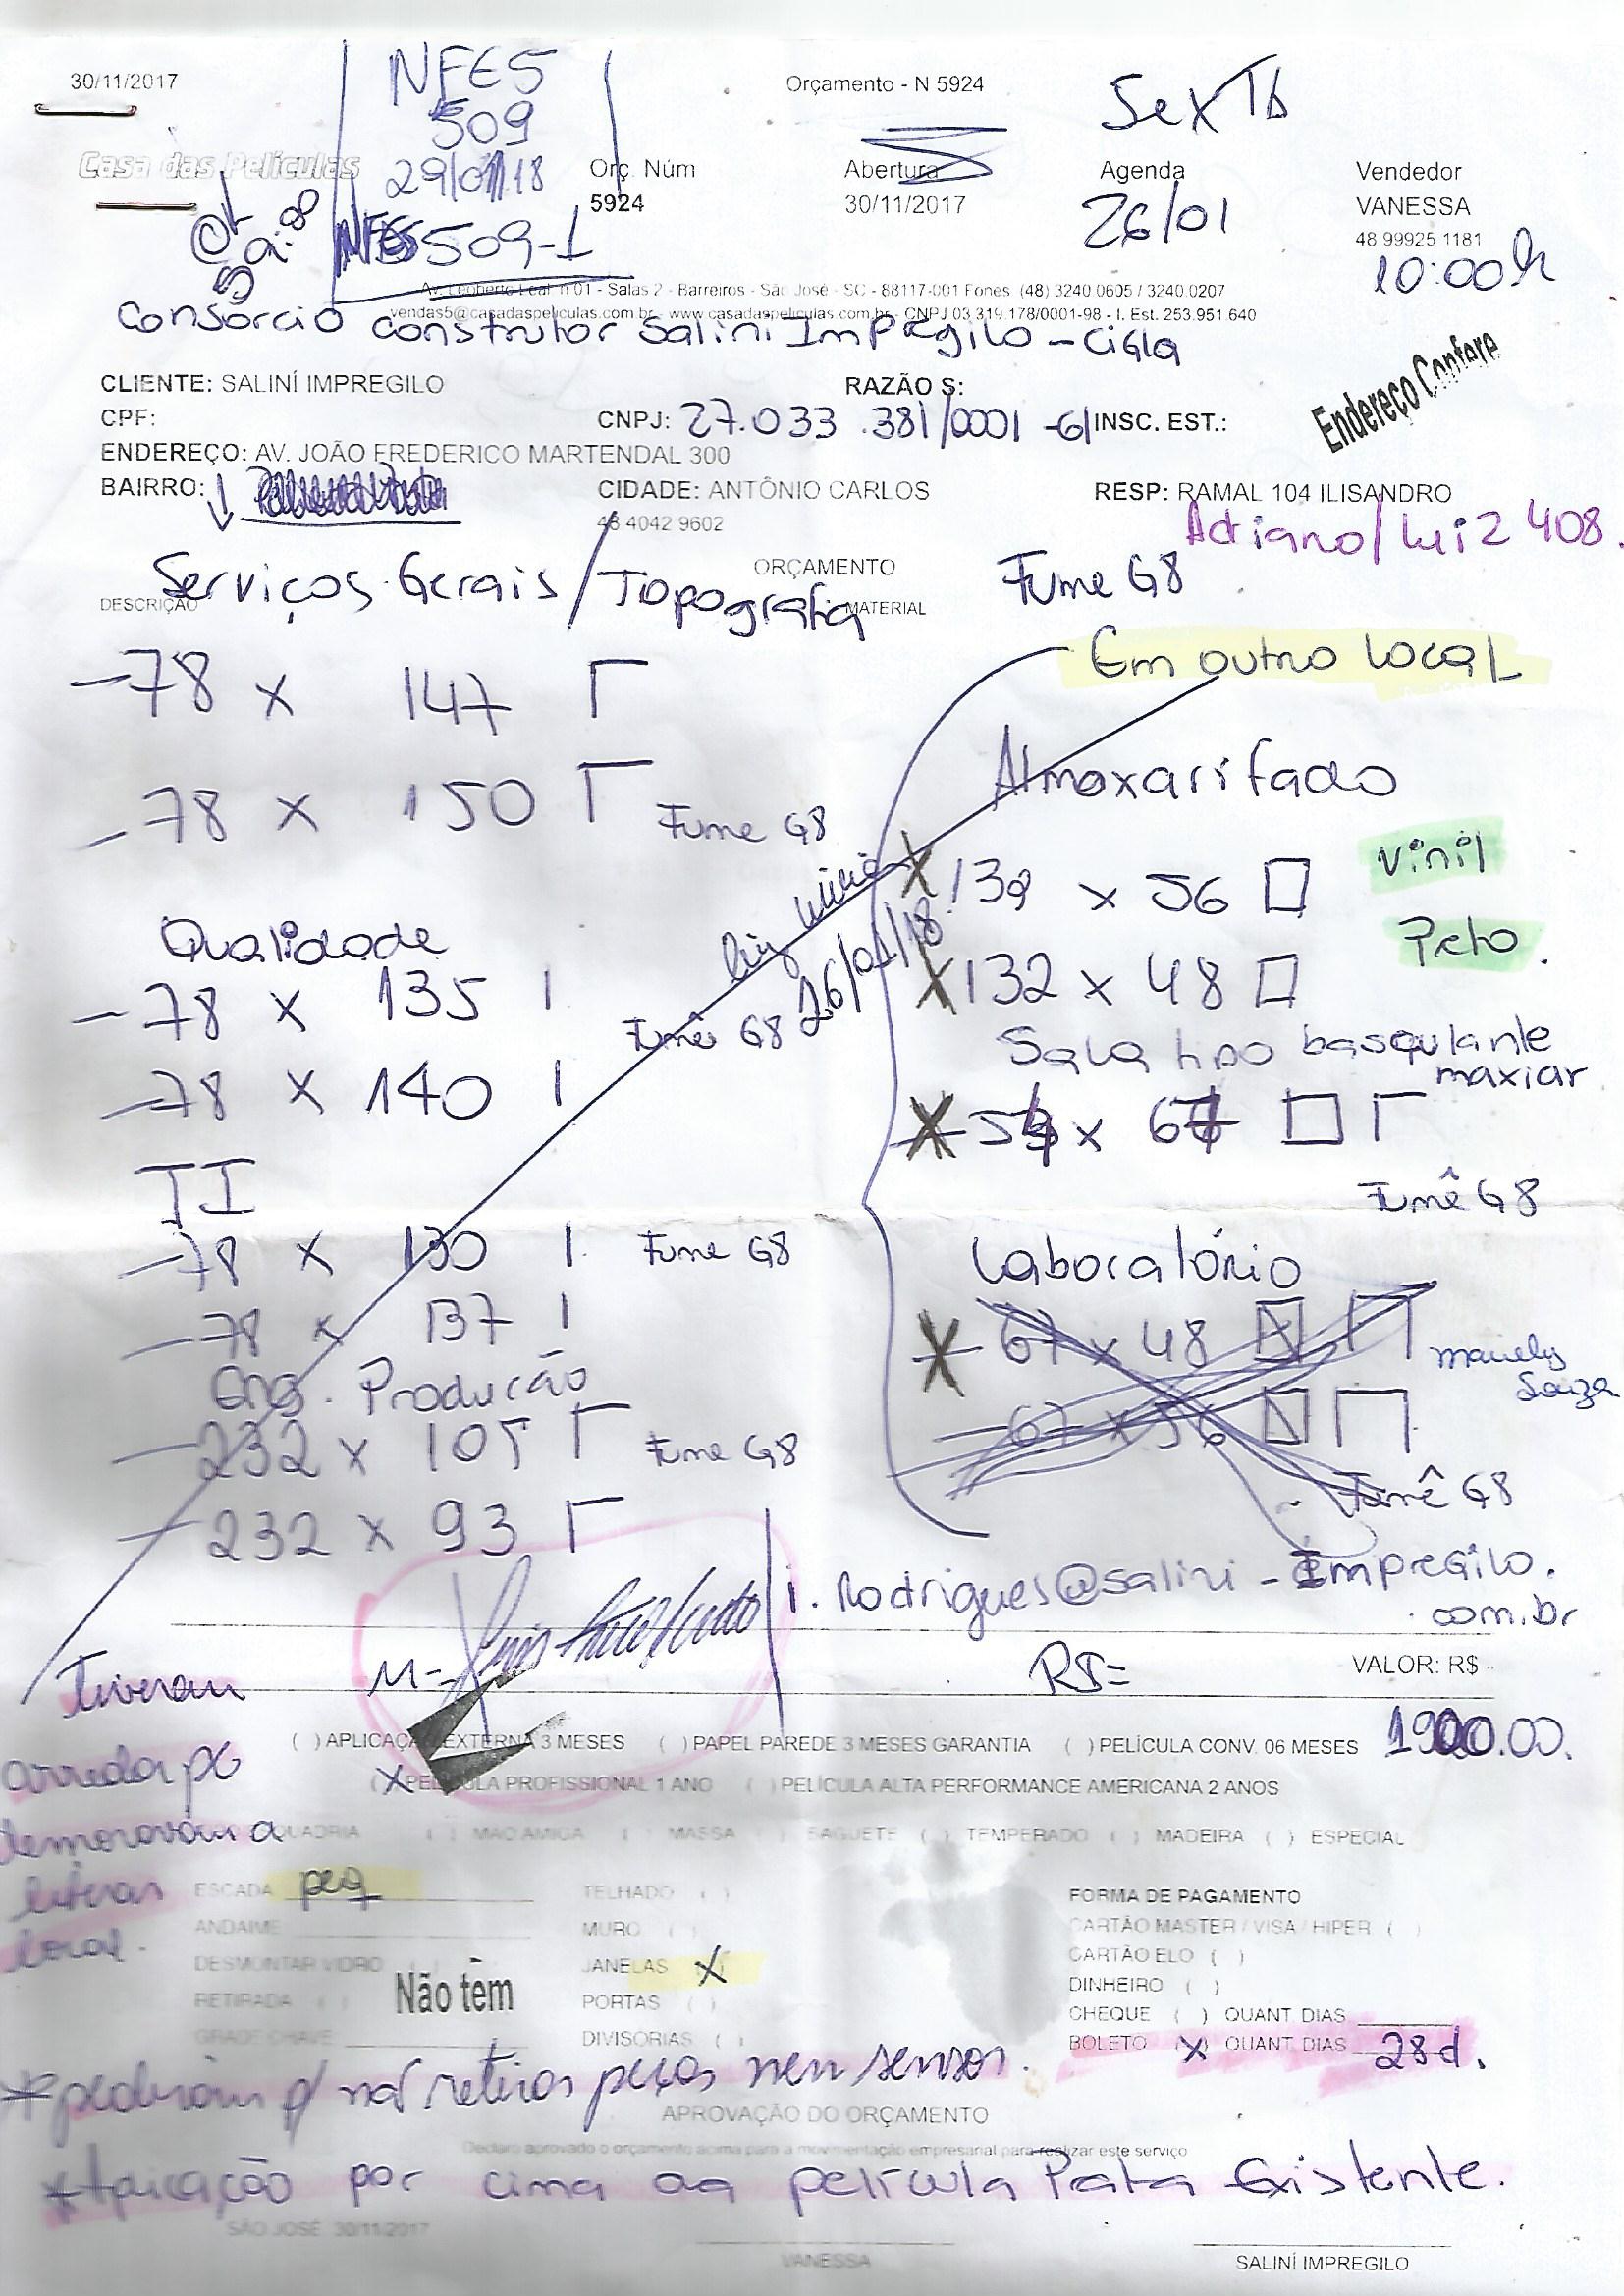 30/11/2017
NFES
509
29/01/18
NFES 509-1
Orçamento - N 5924
SexTa
Casa das Películas
Orç. Núm
5924
Abertura
30/11/2017
Agenda
26/01
Vendedor
VANESSA
48 99925 1181
10:00h
Av. Leoberto Leal, n 01 - Salas 2 - Barreiros - São José - SC - 88117-001 Fones: (48) 3240.0605 / 3240.0207
vendas5@casadaspeliculas.com.br - www.casadaspeliculas.com.br - CNPJ 03.319.178/0001-98 - I. Est. 253.951.640
Consórcio construtor Salini Impregilo - Cigla
CLIENTE: SALINÍ IMPREGILO
RAZÃO S:
Endereço Confere
CPF:
CNPJ: 27.033.381/0001-61
INSC. EST.:
ENDEREÇO: AV. JOÃO FREDERICO MARTENDAL 300
BAIRRO:
CIDADE: ANTÔNIO CARLOS
RESP: RAMAL 104 ILISANDRO
48 4042 9602
Adriano/Luiz 408.
ORÇAMENTO
Serviços Gerais / Topografia
Fume G8
DESCRIÇÃO
MATERIAL
- 78 x 147
- 78 x 150
Fume G8
Qualidade
- 78 x 135
Fumê G8
- 78 x 140
TI
- 78 x 130
Fume G8
- 78 x 137
Eng. Produção
- 232 x 105
Fume G8
- 232 x 93
26/01/18
Em outro local
Almoxarifado
139 x 56
Vinil
Preto.
132 x 48
Sala tipo basqulante
maxiar
67
Fumê G8
Laboratório
67 x 48
- 67 x 56
Souza
Fumê G8
i.Rodrigues@salini-Impregilo.
com.br
M-
R$=
VALOR: R$ -
1900.00.
( ) APLICAÇÃO EXTERNA 3 MESES ( ) PAPEL PAREDE 3 MESES GARANTIA ( ) PELÍCULA CONV. 06 MESES
(X) PELÍCULA PROFISSIONAL 1 ANO ( ) PELÍCULA ALTA PERFORMANCE AMERICANA 2 ANOS
QUADRIA ( ) MAÇANIGA ( ) MASSA ( ) BAGUETE ( ) TEMPERADO ( ) MADEIRA ( ) ESPECIAL
Tiveram
local.
ESCADA peq
ANDAIME
DESMONTAR VIDRO ( )
RETIRADA ( )
GRADE CHAVE
Não têm
TELHADO ( )
MURO ( )
JANELAS (X)
PORTAS ( )
DIVISÓRIAS ( )
FORMA DE PAGAMENTO
CARTÃO MASTER / VISA / HIPER ( )
CARTÃO ELO ( )
DINHEIRO ( )
CHEQUE ( ) QUANT. DIAS
BOLETO (X) QUANT. DIAS 28d.
*pediram p/ não retirar peças nem sensor.
APROVAÇÃO DO ORÇAMENTO
Declaro aprovado o orçamento acima para a movimentação empresarial para realizar este serviço
*Aplicação por cima da película Prata Existente.
SÃO JOSÉ: 30/11/2017
VANESSA
SALINÍ IMPREGILO